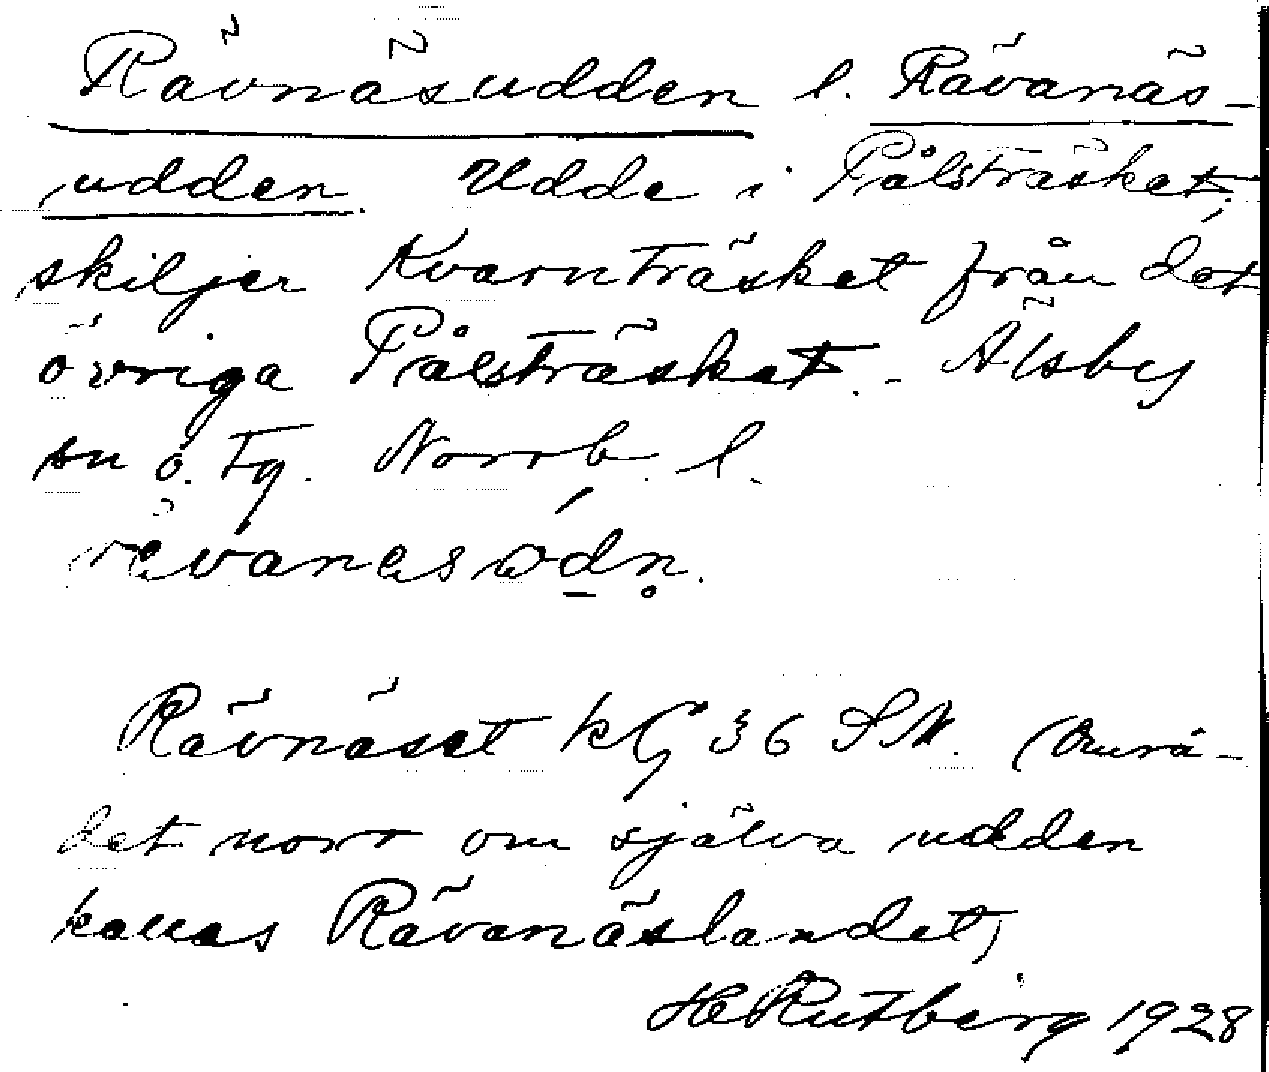 Rävnäsudden l. Rävanäs-
udden. Udde i Pålsträsket,
skiljer Kvarnträsket från det
övriga Pålsträsket. - Älsby
sn o. tg. Norrb. l.
rävanäsωdn̥.
Rävnäset kG 36 SN. (Områ-
det norr om själva udden
kallas Rävanäslandet)
HRutberg 1928